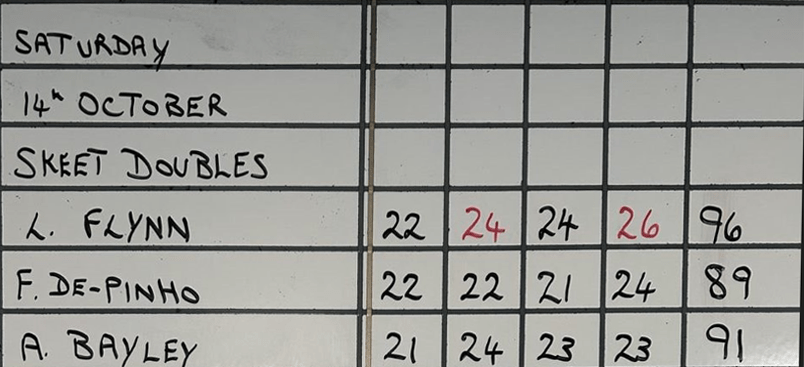 SATURDAY
14th OCTOBER
SKEET DOUBLES
L. FLYNN 22 24 24 26 96
F. DE-PINHO 22 22 21 24 89
A. BAYLEY 21 24 23 23 91